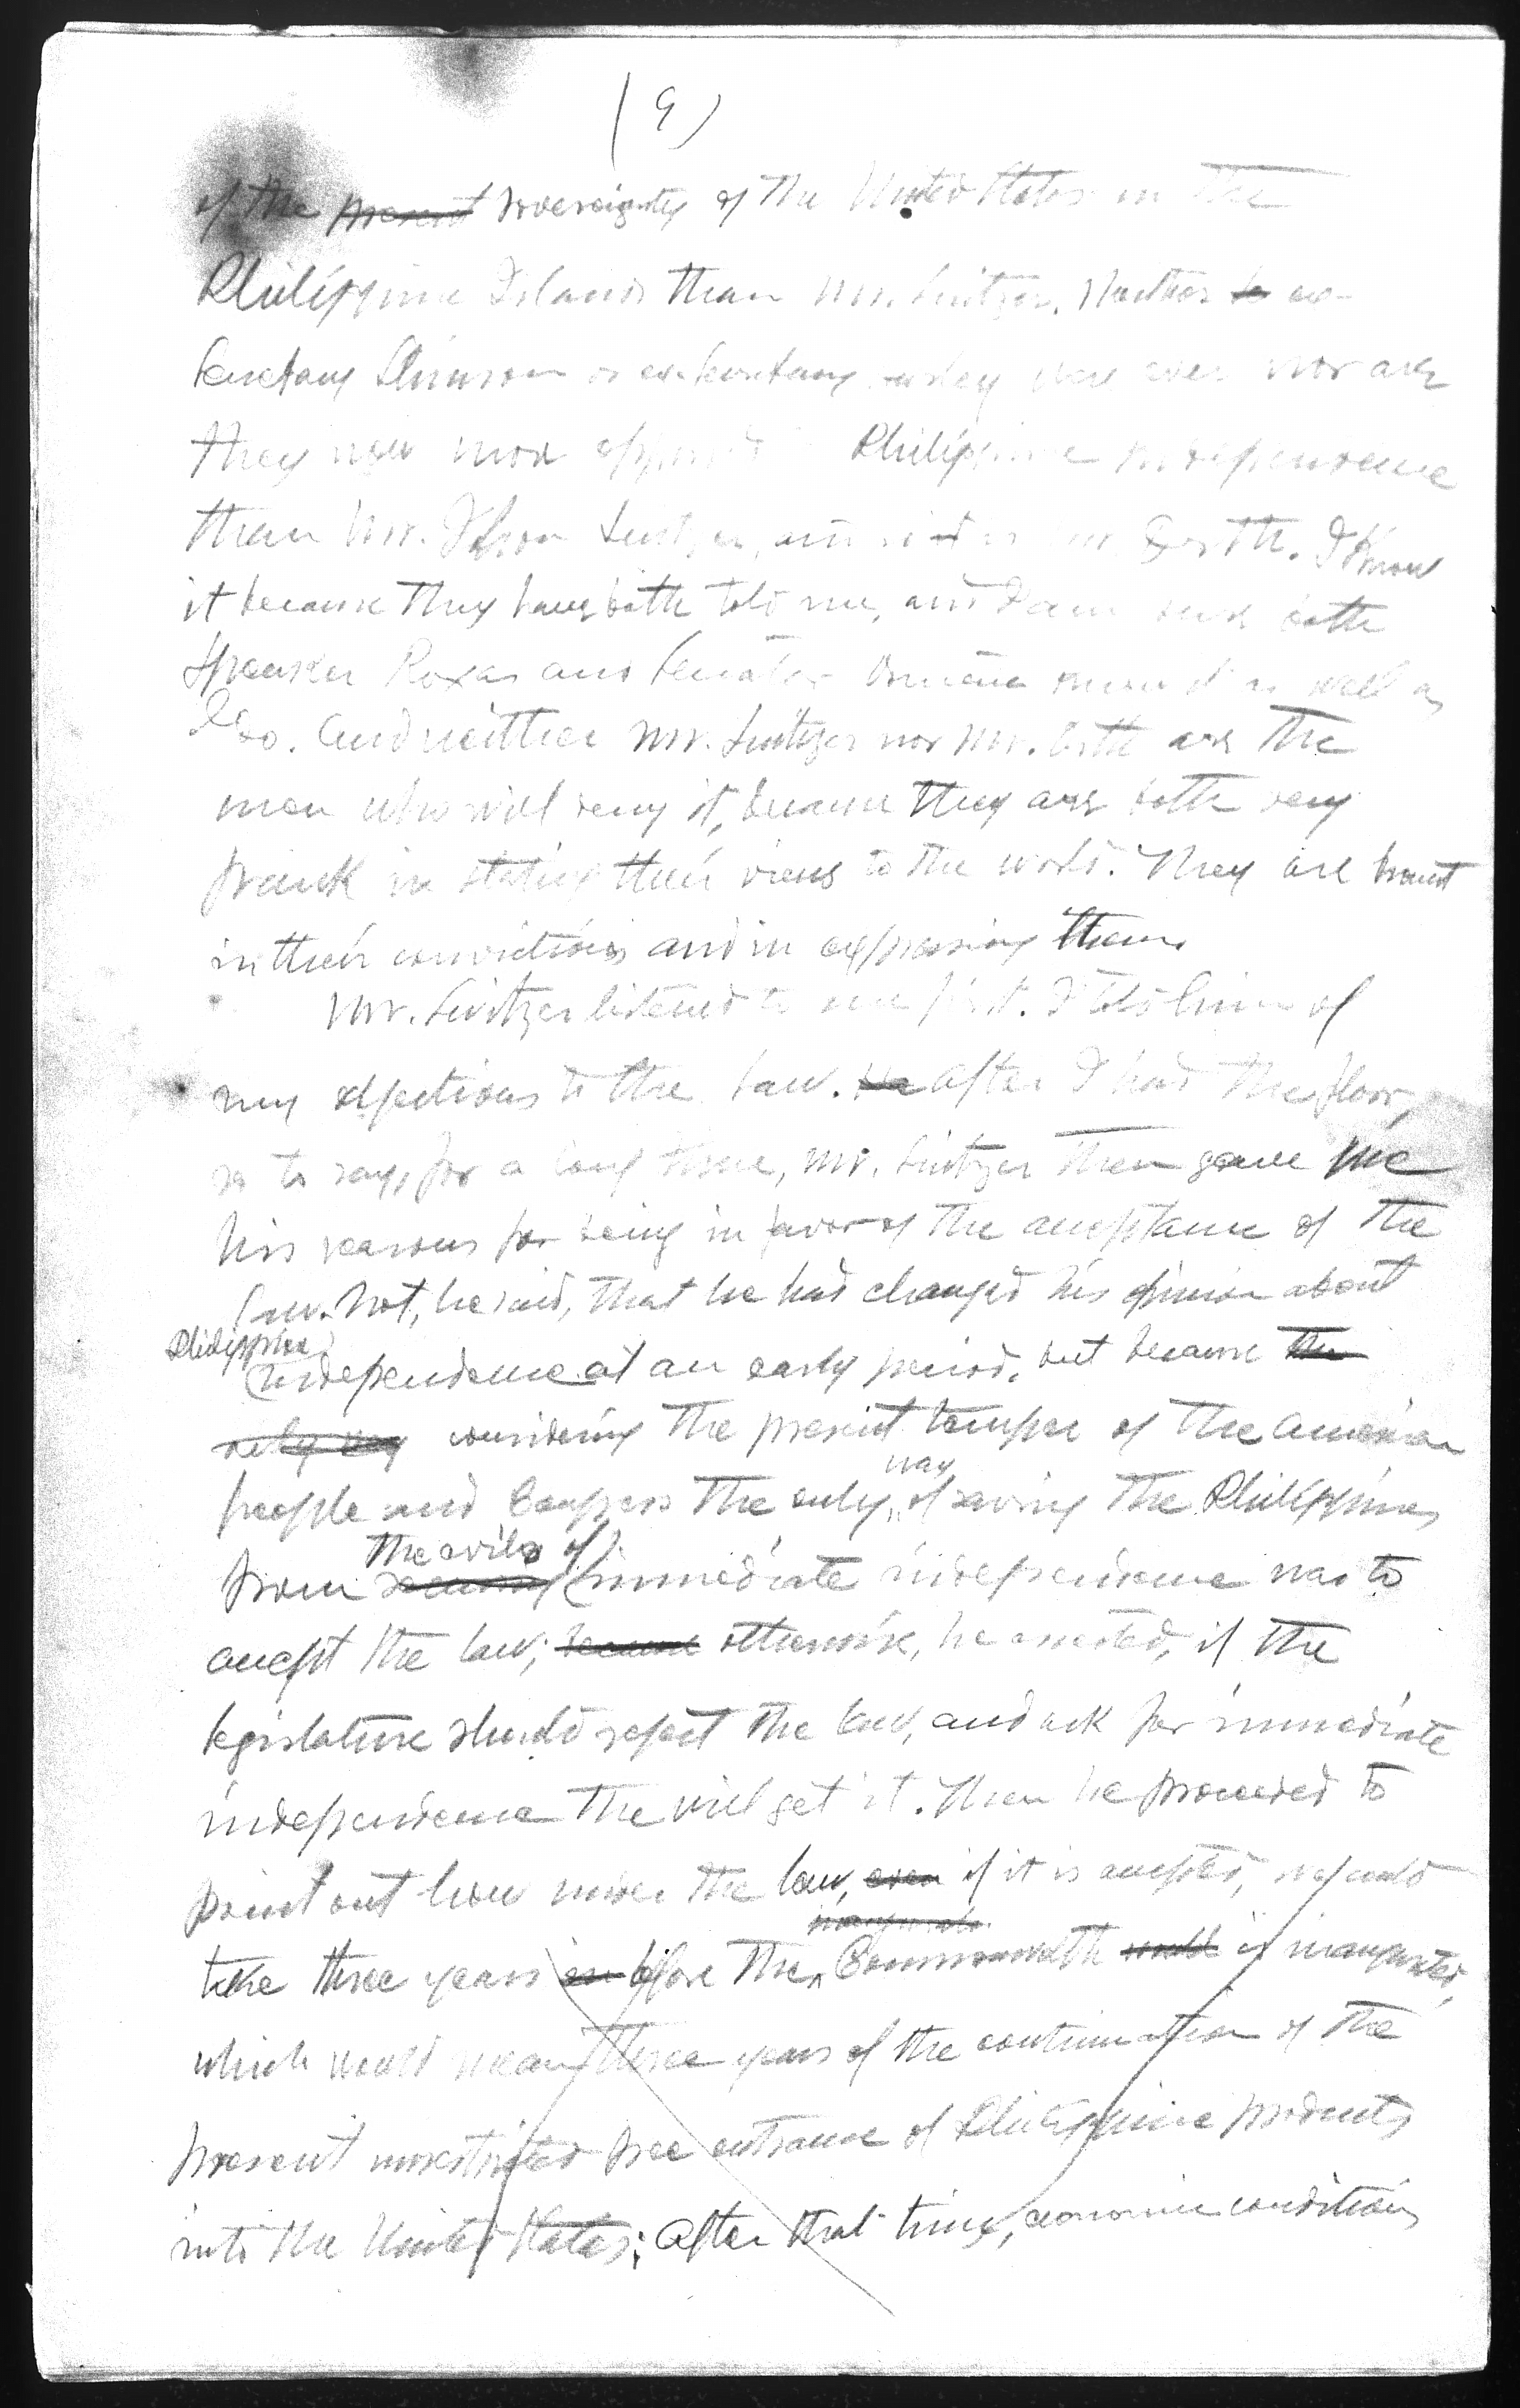 (9)
of the present sovereignty of the United States in the
Philippine Islands than Mr. Switzer. Neither to ex-
Secretary Stimson or ex-Secretary were ever nor are
they now more opposed Philippine independence
than Mr. Switzer, Orth. I know
it because they have both told me, and I am sure both
Speaker Roxas and Senator Osmeña know it as well as
I do. And neither Mr. Switzer nor Mr. Orth are the
men who will deny it, because they are both very
frank in stating their views to the world. They are honest
in their convictions and in expressing them.
Mr. Switzer listened to me first. I told him of
my objections to the law. He After I had the floor,
so to say, for a long time, Mr. Switzer then gave me
his reasons for being in favor of the acceptance of the
law. Not, he said, that he had changed his opinion about
Philippine
independence at an early period, but because the
only way considering the present temper of the American
way
people and Congress the only of saving the Philippines
the evils of
from immediate independence was to
accept the law; because otherwise, he asserted, if the
legislature should reject the law, and ask for immediate
independence the will get it. Then he proceeded to
point out how under the law, even if it is accepted, would
inaugurate
take three years before the Commonwealth would is inaugurated,
which would mean three years of the continuation of the
present unrestricted free entrance of Philippine products
into the United States; after that time, economic conditions